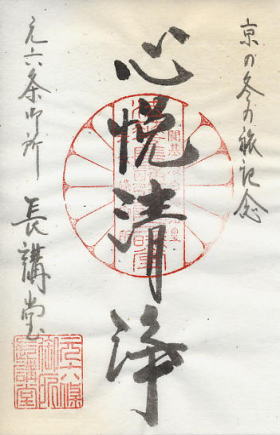 京の冬の旅記念
心悦清浄
元六条御所
長講堂
元六條
御所
長講堂